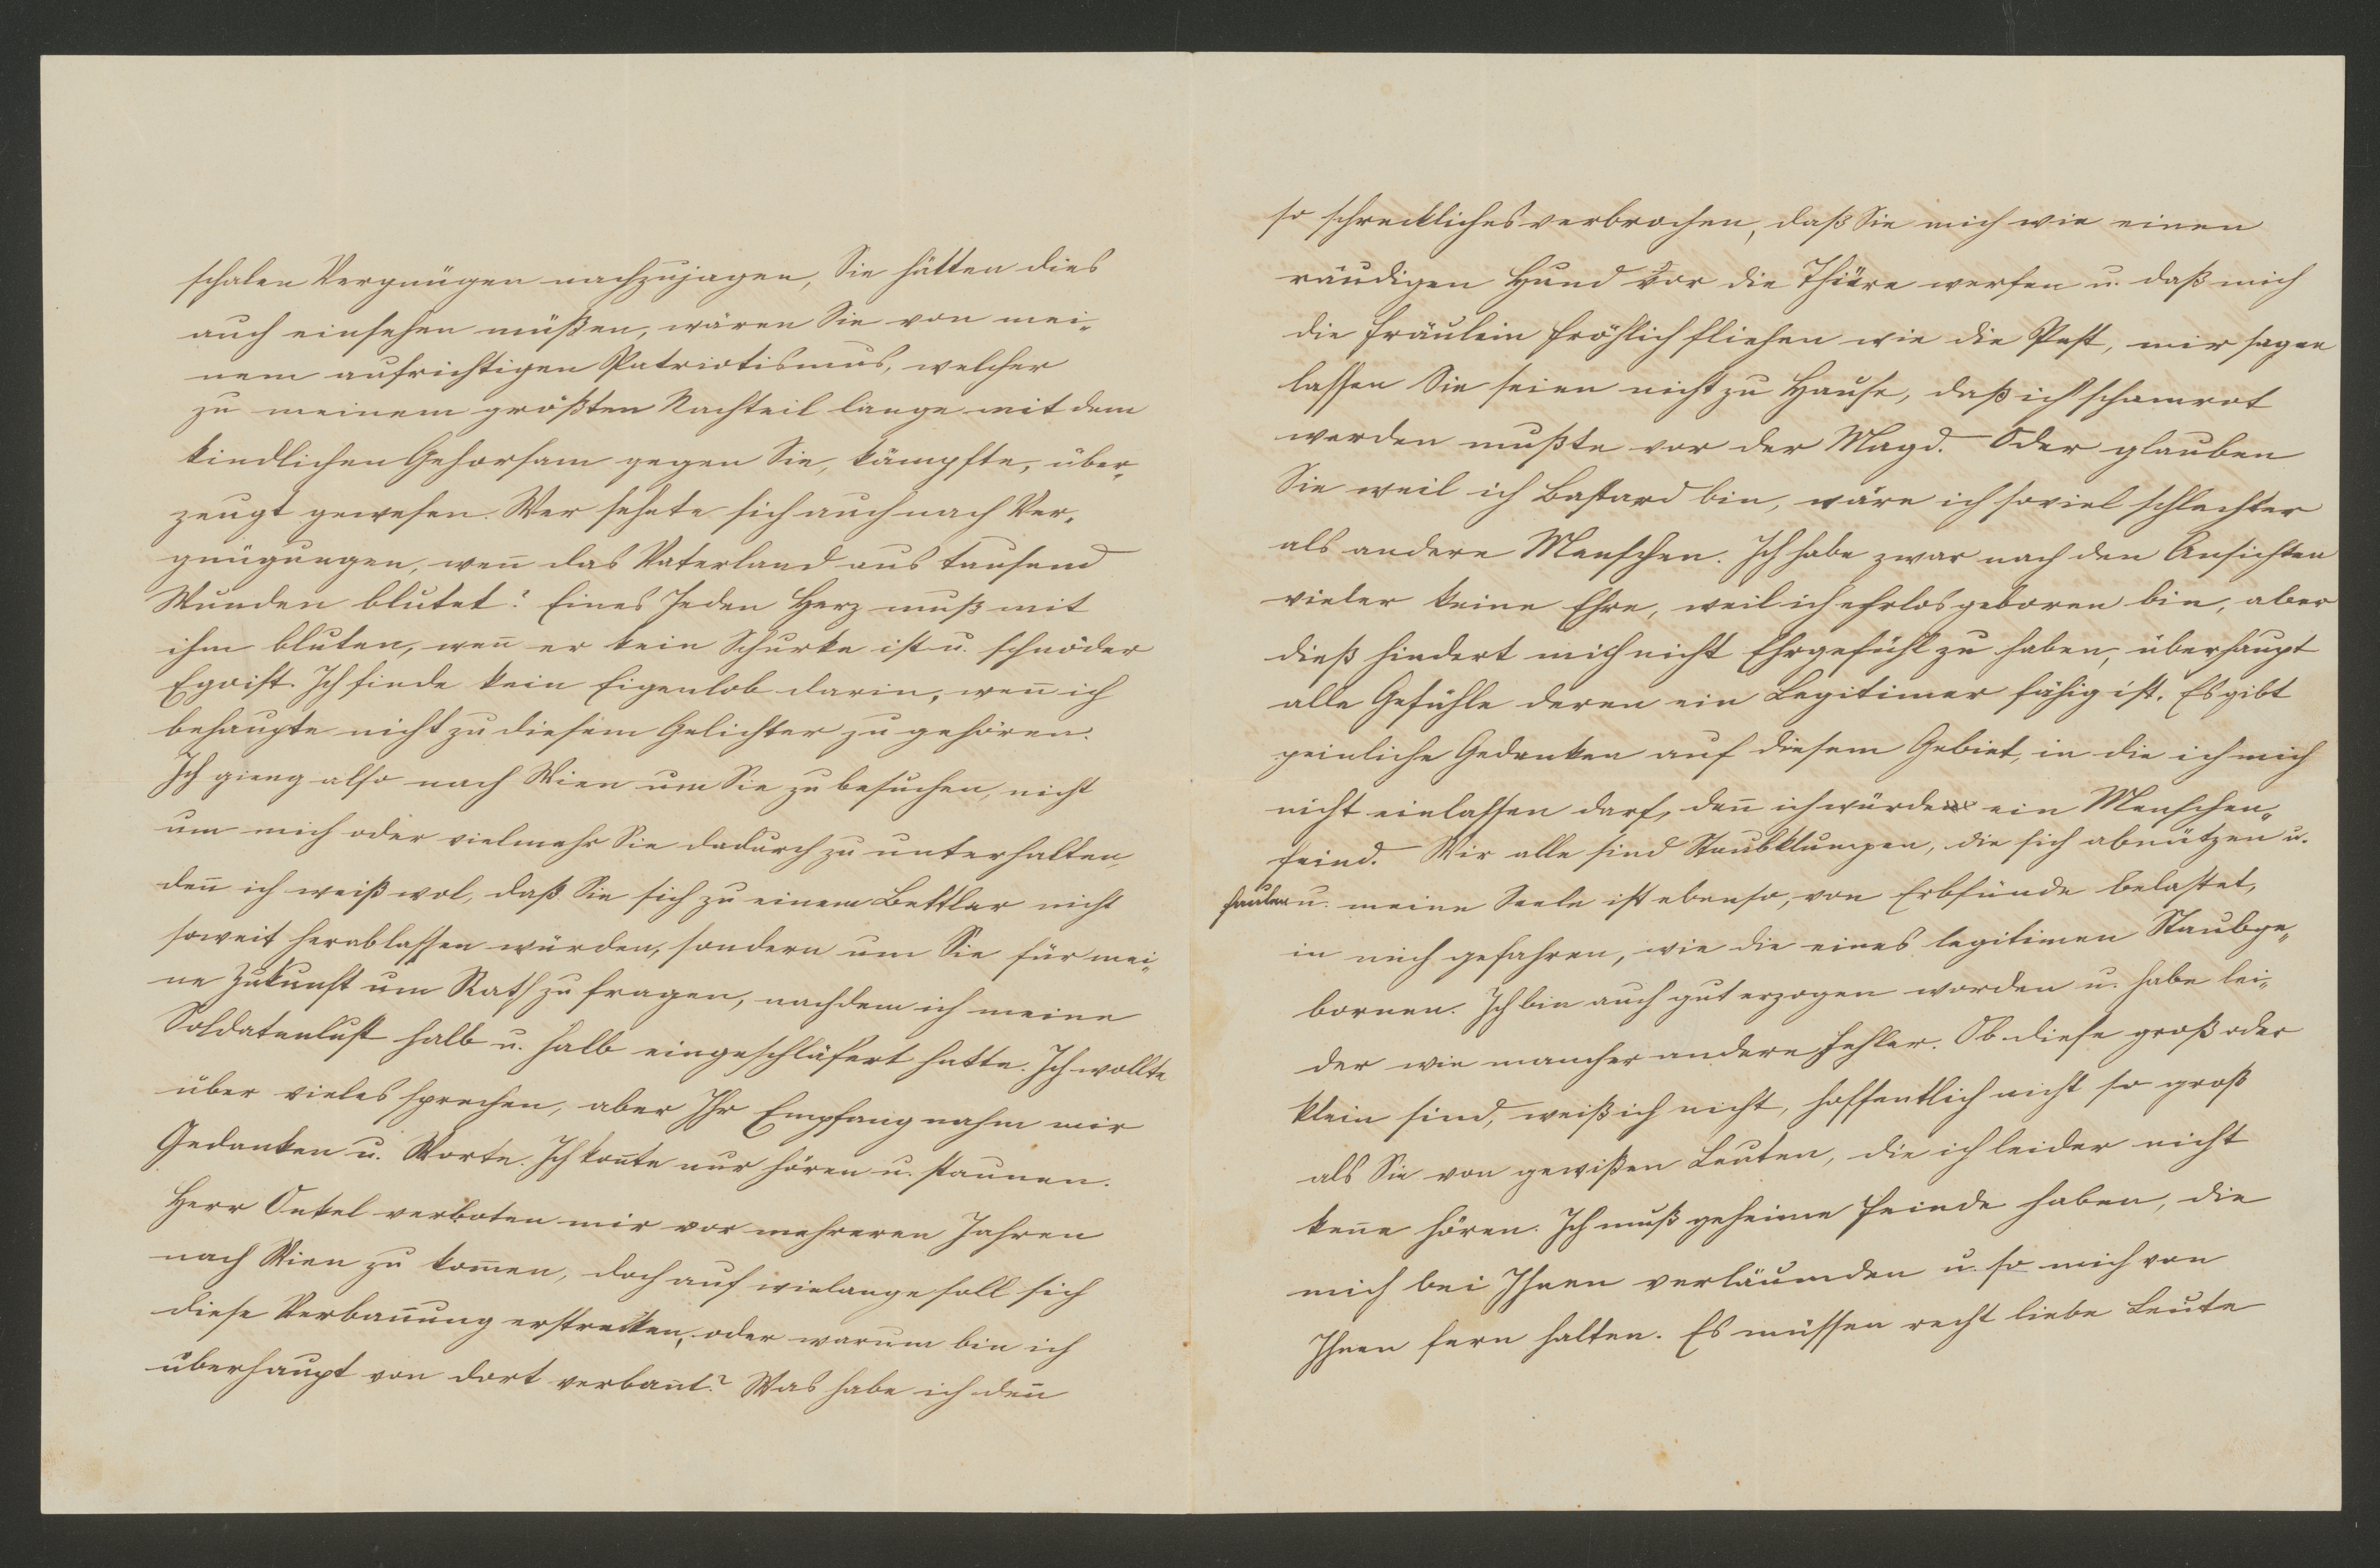 schalen Vergnügen nachzujagen, Sie hätten dies
auch einsehen müßen, wären Sie von mei-
nem aufrichtigen Patriotismus, welcher
zu meinem größten Nachteil lange mit dem
kindlichen Gehorsam gegen Sie, kämpfte, über-
zeugt gewesen. Wer sehnte sich auch nach Ver-
gnügungen, weñ das Vaterland aus tausend
Wunden blutet? Eines Jeden Herz muß mit
ihm bluten, weñ er kein Schurke ist u. schnöder
Egoist. Ich finde kein Eigenlob darin, weñ ich
behaupte nicht zu diesem Gelichter zu gehören.
Ich gieng also nach Wien um Sie zu besuchen, nicht
um mich oder vielmehr Sie dadurch zu unterhalten,
deñ ich weiß wol, daß Sie sich zu einem Bettler nicht
soweit herablassen würden, sondern um Sie für mei-
ne Zukunft um Rath zu fragen, nachdem ich meine
Soldatenlust halb u. halb eingeschläfert hatte. Ich wollte
über vieles sprechen, aber Ihr Empfang nahm mir
Gedanken u. Worte. Ich koñte nur hören u. staunen.
Herr Onkel verboten mir vor mehreren Jahren
nach Wien zu kom̃en, doch auf wielange soll sich
diese Verbañung erstrecken, oder warum bin ich
überhaupt von dort verbañt? Was habe ich deñ
so schreckliches verbrochen, daß Sie mich wie einen
räudigen Hund vor die Thüre werfen u. daß mich
die Fräulein Fröhlich fliehen wie die Pest, mir sagen
lassen Sie seien nicht zu Hause, daß ich schamrot
werden mußte vor der Magd. Oder glauben
Sie weil ich Bastard bin, wäre ich soviel schlechter
als andere Menschen. Ich habe zwar nach den Ansichten
vieler keine Ehre, weil ich ehrlos geboren bin, aber
dieß hindert mich nicht Ehrgefühl zu haben, überhaupt
alle Gefühle deren ein Legitimer fähig ist. Es gibt
peinliche Gedanken auf diesem Gebiet, in die ich mich
nicht einlassen darf, deñ ich würde ein Menschen-
feind. Wir alle sind Staubklumpen, die sich abnützen u.
faulen u. meine Seele ist ebenso, von Erbsünde belastet,
in mich gefahren, wie die eines legitimen Staubge-
bornen. Ich bin auch gut erzogen worden u. habe lei-
der wie mancher andere Fehler. Ob diese groß oder
klein sind, weiß ich nicht, hoffentlich nicht so groß
als Sie von gewißen Leuten, die ich leider nicht
keñe hören. Ich muß geheime Feinde haben, die
mich bei Ihnen verläumden u. so mich von
Ihnen fern halten. Es müssen recht liebe Leute